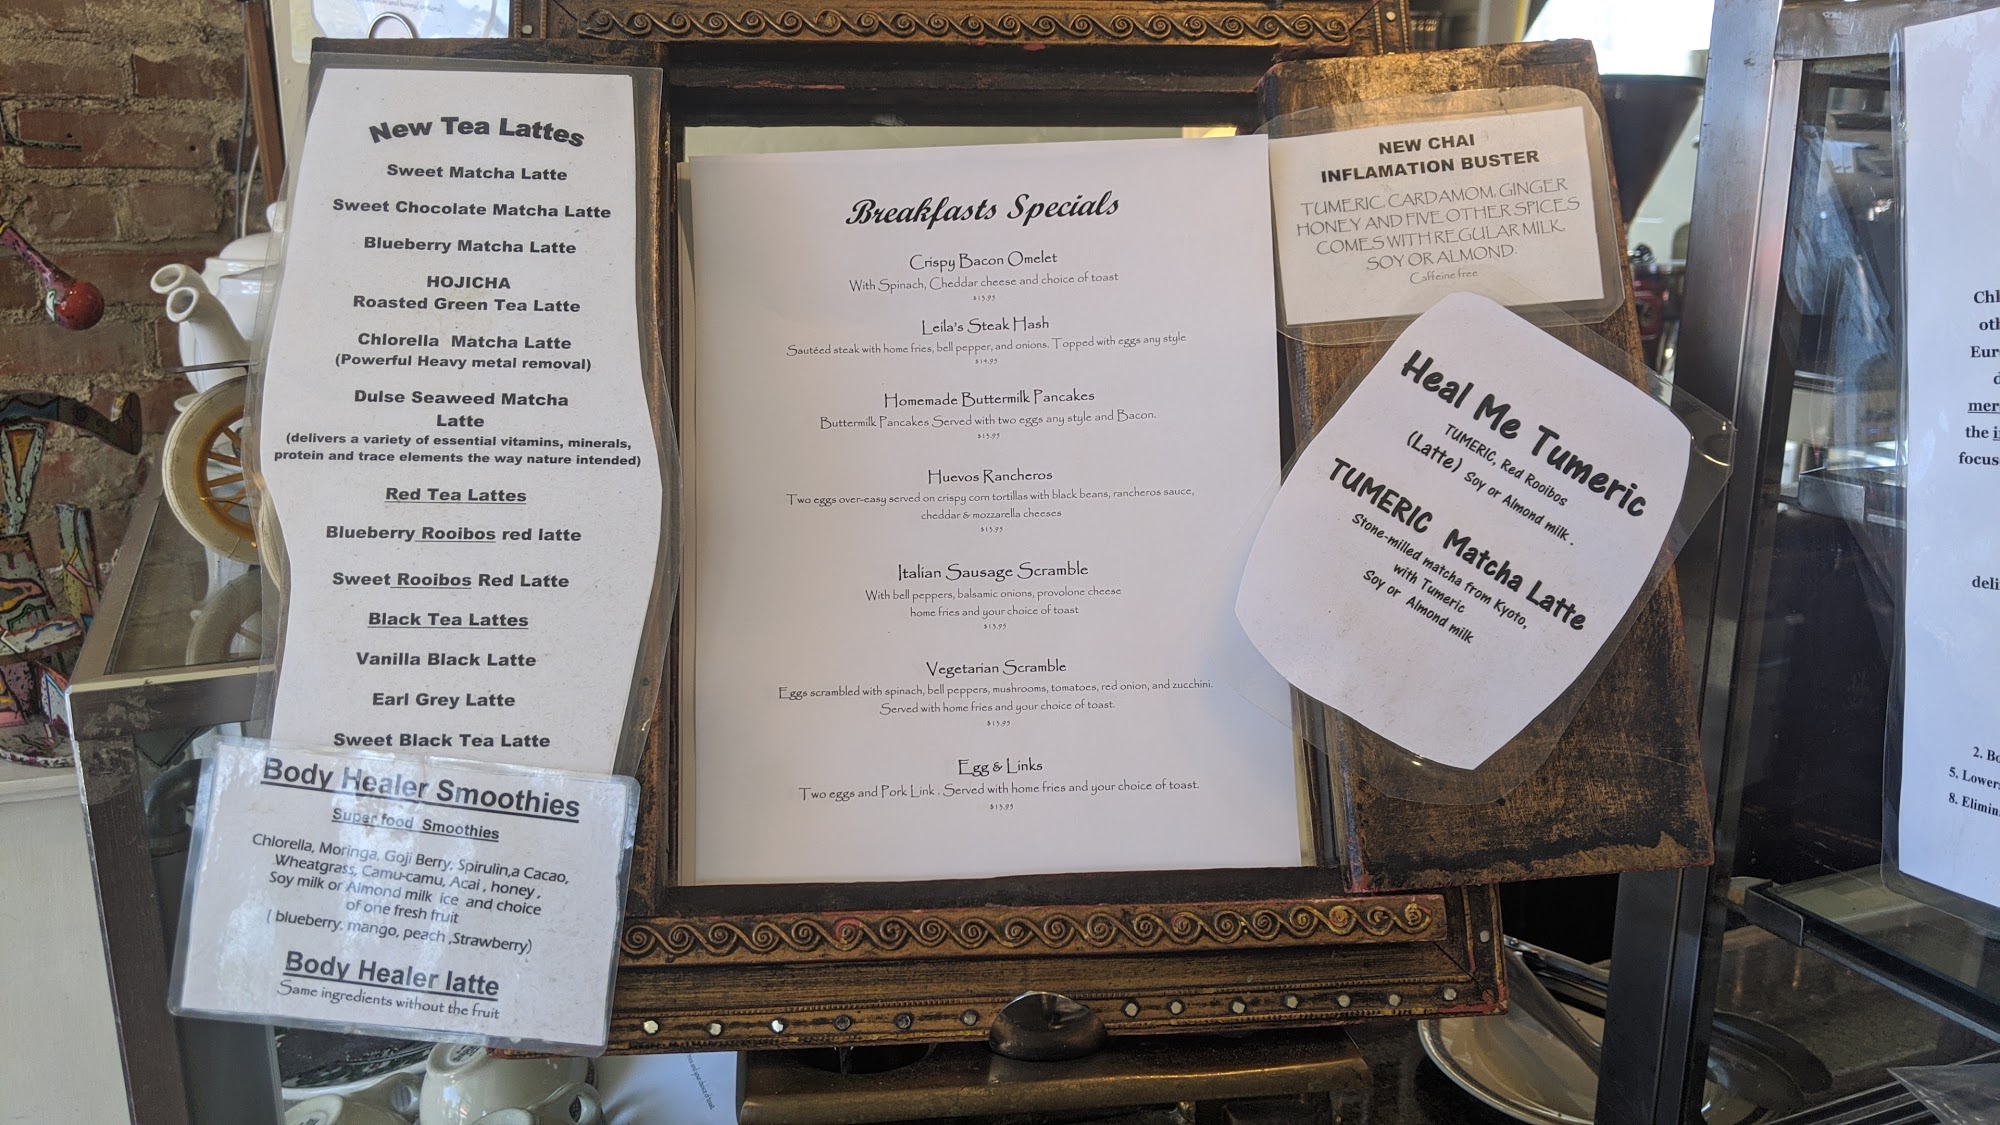 New Tea Lattes
Sweet Matcha Latte
Sweet Chocolate Matcha Latte
Blueberry Matcha Latte
HOJICHA
Roasted Green Tea Latte
Chlorella Matcha Latte
(Powerful Heavy metal removal)
Dulse Seaweed Matcha
Latte
(delivers a variety of essential vitamins, minerals,
protein and trace elements the way nature intended)
Red Tea Lattes
Blueberry Rooibos red latte
Sweet Rooibos Red Latte
Black Tea Lattes
Vanilla Black Latte
Earl Grey Latte
Sweet Black Tea Latte
Body Healer Smoothies
Super food Smoothies
Chlorella, Moringa, Goji Berry, Spirulin,a Cacao,
Wheatgrass, Camu-camu, Acai , honey ,
Soy milk or Almond milk ice and choice
of one fresh fruit
( blueberry. mango, peach ,Strawberry)
Body Healer latte
Same ingredients without the fruit
Breakfasts Specials
Crispy Bacon Omelet
With Spinach, Cheddar cheese and choice of toast
$13.95
Leila's Steak Hash
Sautéed steak with home fries, bell pepper, and onions. Topped with eggs any style
$14.95
Homemade Buttermilk Pancakes
Buttermilk Pancakes Served with two eggs any style and Bacon.
$13.95
Huevos Rancheros
Two eggs over-easy served on crispy corn tortillas with black beans, rancheros sauce,
cheddar & mozzarella cheeses
$13.95
Italian Sausage Scramble
With bell peppers, balsamic onions, provolone cheese
home fries and your choice of toast
$13.95
Vegetarian Scramble
Eggs scrambled with spinach, bell peppers, mushrooms, tomatoes, red onion, and zucchini.
Served with home fries and your choice of toast.
$13.95
Egg & Links
Two eggs and Pork Link . Served with home fries and your choice of toast.
$13.95
NEW CHAI
INFLAMATION BUSTER
TUMERIC. CARDAMOM, GINGER
HONEY AND FIVE OTHER SPICES
COMES WITH REGULAR MILK,
SOY OR ALMOND.
Caffeine free
Heal Me Tumeric
TUMERIC, Red Rooibos
(Latte) Soy or Almond milk .
TUMERIC Matcha Latte
Stone-milled matcha from Kyoto,
with Tumeric
Soy or Almond milk
Chl
oth
Eur
d
mer
the i
focus
deli
2. Bo
5. Lowers
8. Elimin